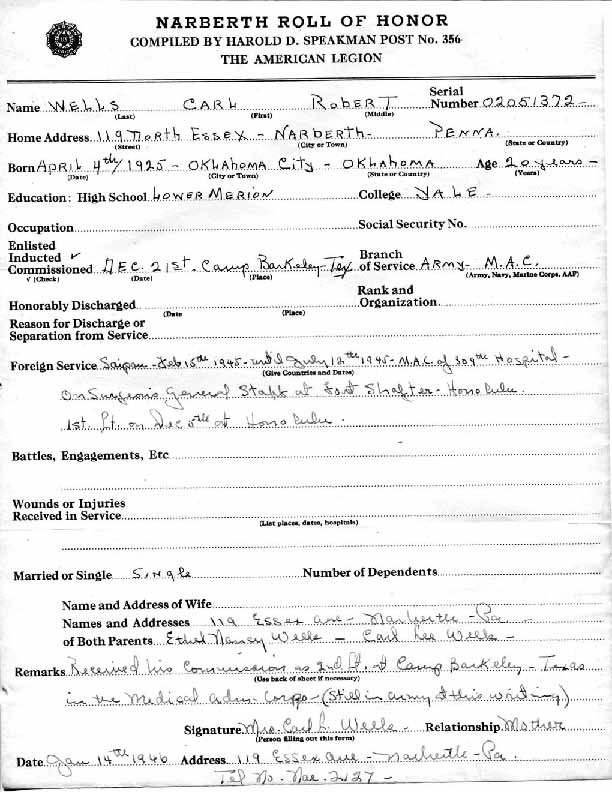 NARBERTH ROLL OF HONOR
COMPILED BY HAROLD D. SPEAKMAN POST No. 356
THE AMERICAN LEGION
Name WELLS CARL ROBERT Serial Number 02051372-
(Last) (First) (Middle)
Home Address 119 North Essex - NARBERTH- PENNA.
(Street) (City or Town) (State or Country)
Born APRIL 4th/1925 - OKLAHOMA CITY - OKLAHOMA Age 20 years-
(Date) (City or Town) (State or Country) (Years)
Education: High School LOWER MERION College YALE-
Occupation Social Security No.
Enlisted
Inducted ✓
Commissioned DEC. 21st. Camp Barkeley-Tex Branch of Service ARMY- M.A.C.
√ (Check) (Date) (Place) (Army, Navy, Marine Corps, AAF)
Honorably Discharged Rank and Organization
(Date (Place)
Reason for Discharge or
Separation from Service
Foreign Service Saipan-Feb 15th 1945-until July 12th 1945-M.A.C. of 309th Hospital-
(Give Countries and Dates)
On Surgeons General Staff at Fort Shafter-Honolulu.
1st. Lt. on Dec 5th at Honolulu.
Battles, Engagements, Etc
Wounds or Injuries
Received in Service
(List places, dates, hospitals)
Married or Single Single Number of Dependents
Name and Address of Wife
Names and Addresses 119 Essex ave - Narberth - Pa
of Both Parents Ethel Nancy Wells - Carl Lee Wells -
Remarks Received his Commission as 2nd Lt. at Camp Barkeley - Texas
(Use back of sheet if necessary)
in the Medical adm. Corps-(Still in army at this writing)
Signature Mrs. Carl L. Wells- Relationship Mother
(Person filling out this form)
Date Jan 14th 1946 Address 119 Essex ave - Narberth - Pa.
Tel No. Nar. 2437-